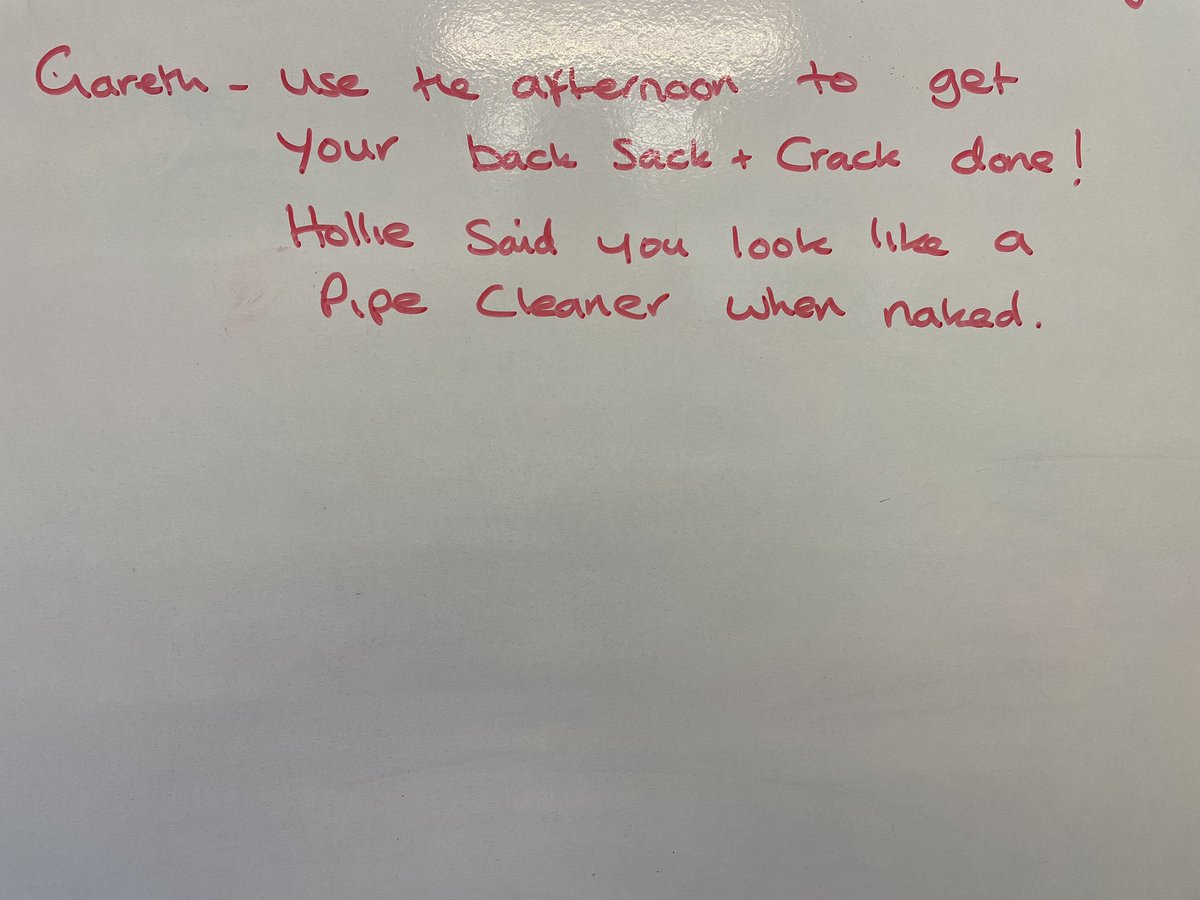 Gareth - Use the afternoon to get
your back Sack + Crack done!
Hollie Said you look like a
Pipe Cleaner when naked.